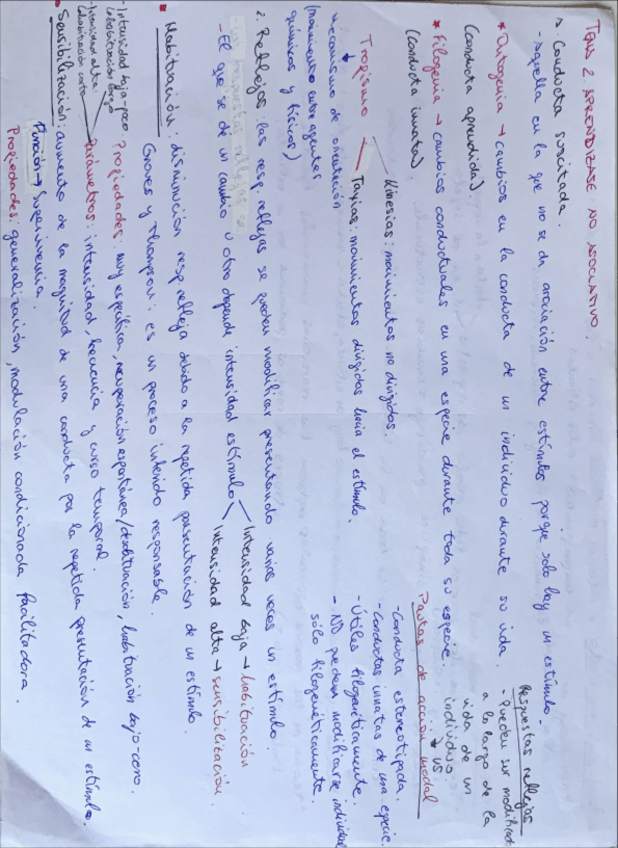 TEMA 2. APRENDIZAJE NO ASOCIATIVO.
1. Conducta suscitada.
- Aquella en la que no se da asociación entre estímulos porque solo hay un estímulo -
* Ontogenia → cambios en la conducta de un individuo durante su vida.
(conducta aprendida)
* Filogenia → cambios conductuales en una especie durante toda su especie.
(conducta innata)
Respuestas reflejas
- Pueden ser modificadas
a lo largo de la
vida de un
individuo
vs
Pautas de acción modal
- Conducta estereotipada.
- Conductas innatas de una especie.
- Útiles filogenéticamente
- NO pueden modificarse individual
sólo filogenéticamente.
Kinesias: movimientos no dirigidos.
Tropismo → Taxias: movimientos dirigidos hacia el estímulo.
mecanismo de orientación
(movimiento entre agentes
químicos y físicos)
2. Reflejos: las resp. reflejas se pueden modificar presentando varias veces un estímulo.
- El que se dé un cambio u otro depende intensidad estímulo
Intensidad baja → habituación
Intensidad alta → sensibilización.
* Habituación: disminución resp. refleja debido a la repetida presentación de un estímulo.
Groves y Thompson: es un proceso interno responsable.
Propiedades: muy específica, recuperación espontánea/deshabituación, habituación bajo-cero.
Parámetros: intensidad, frecuencia y curso temporal.
- Intensidad baja-poco
habituación largo
- Intensidad alta:
habituación corto
* Sensibilización: aumento de la magnitud de una conducta por la repetida presentación de un estímulo.
Función → Supervivencia.
Propiedades: generalización, modulación condicionada facilitadora.